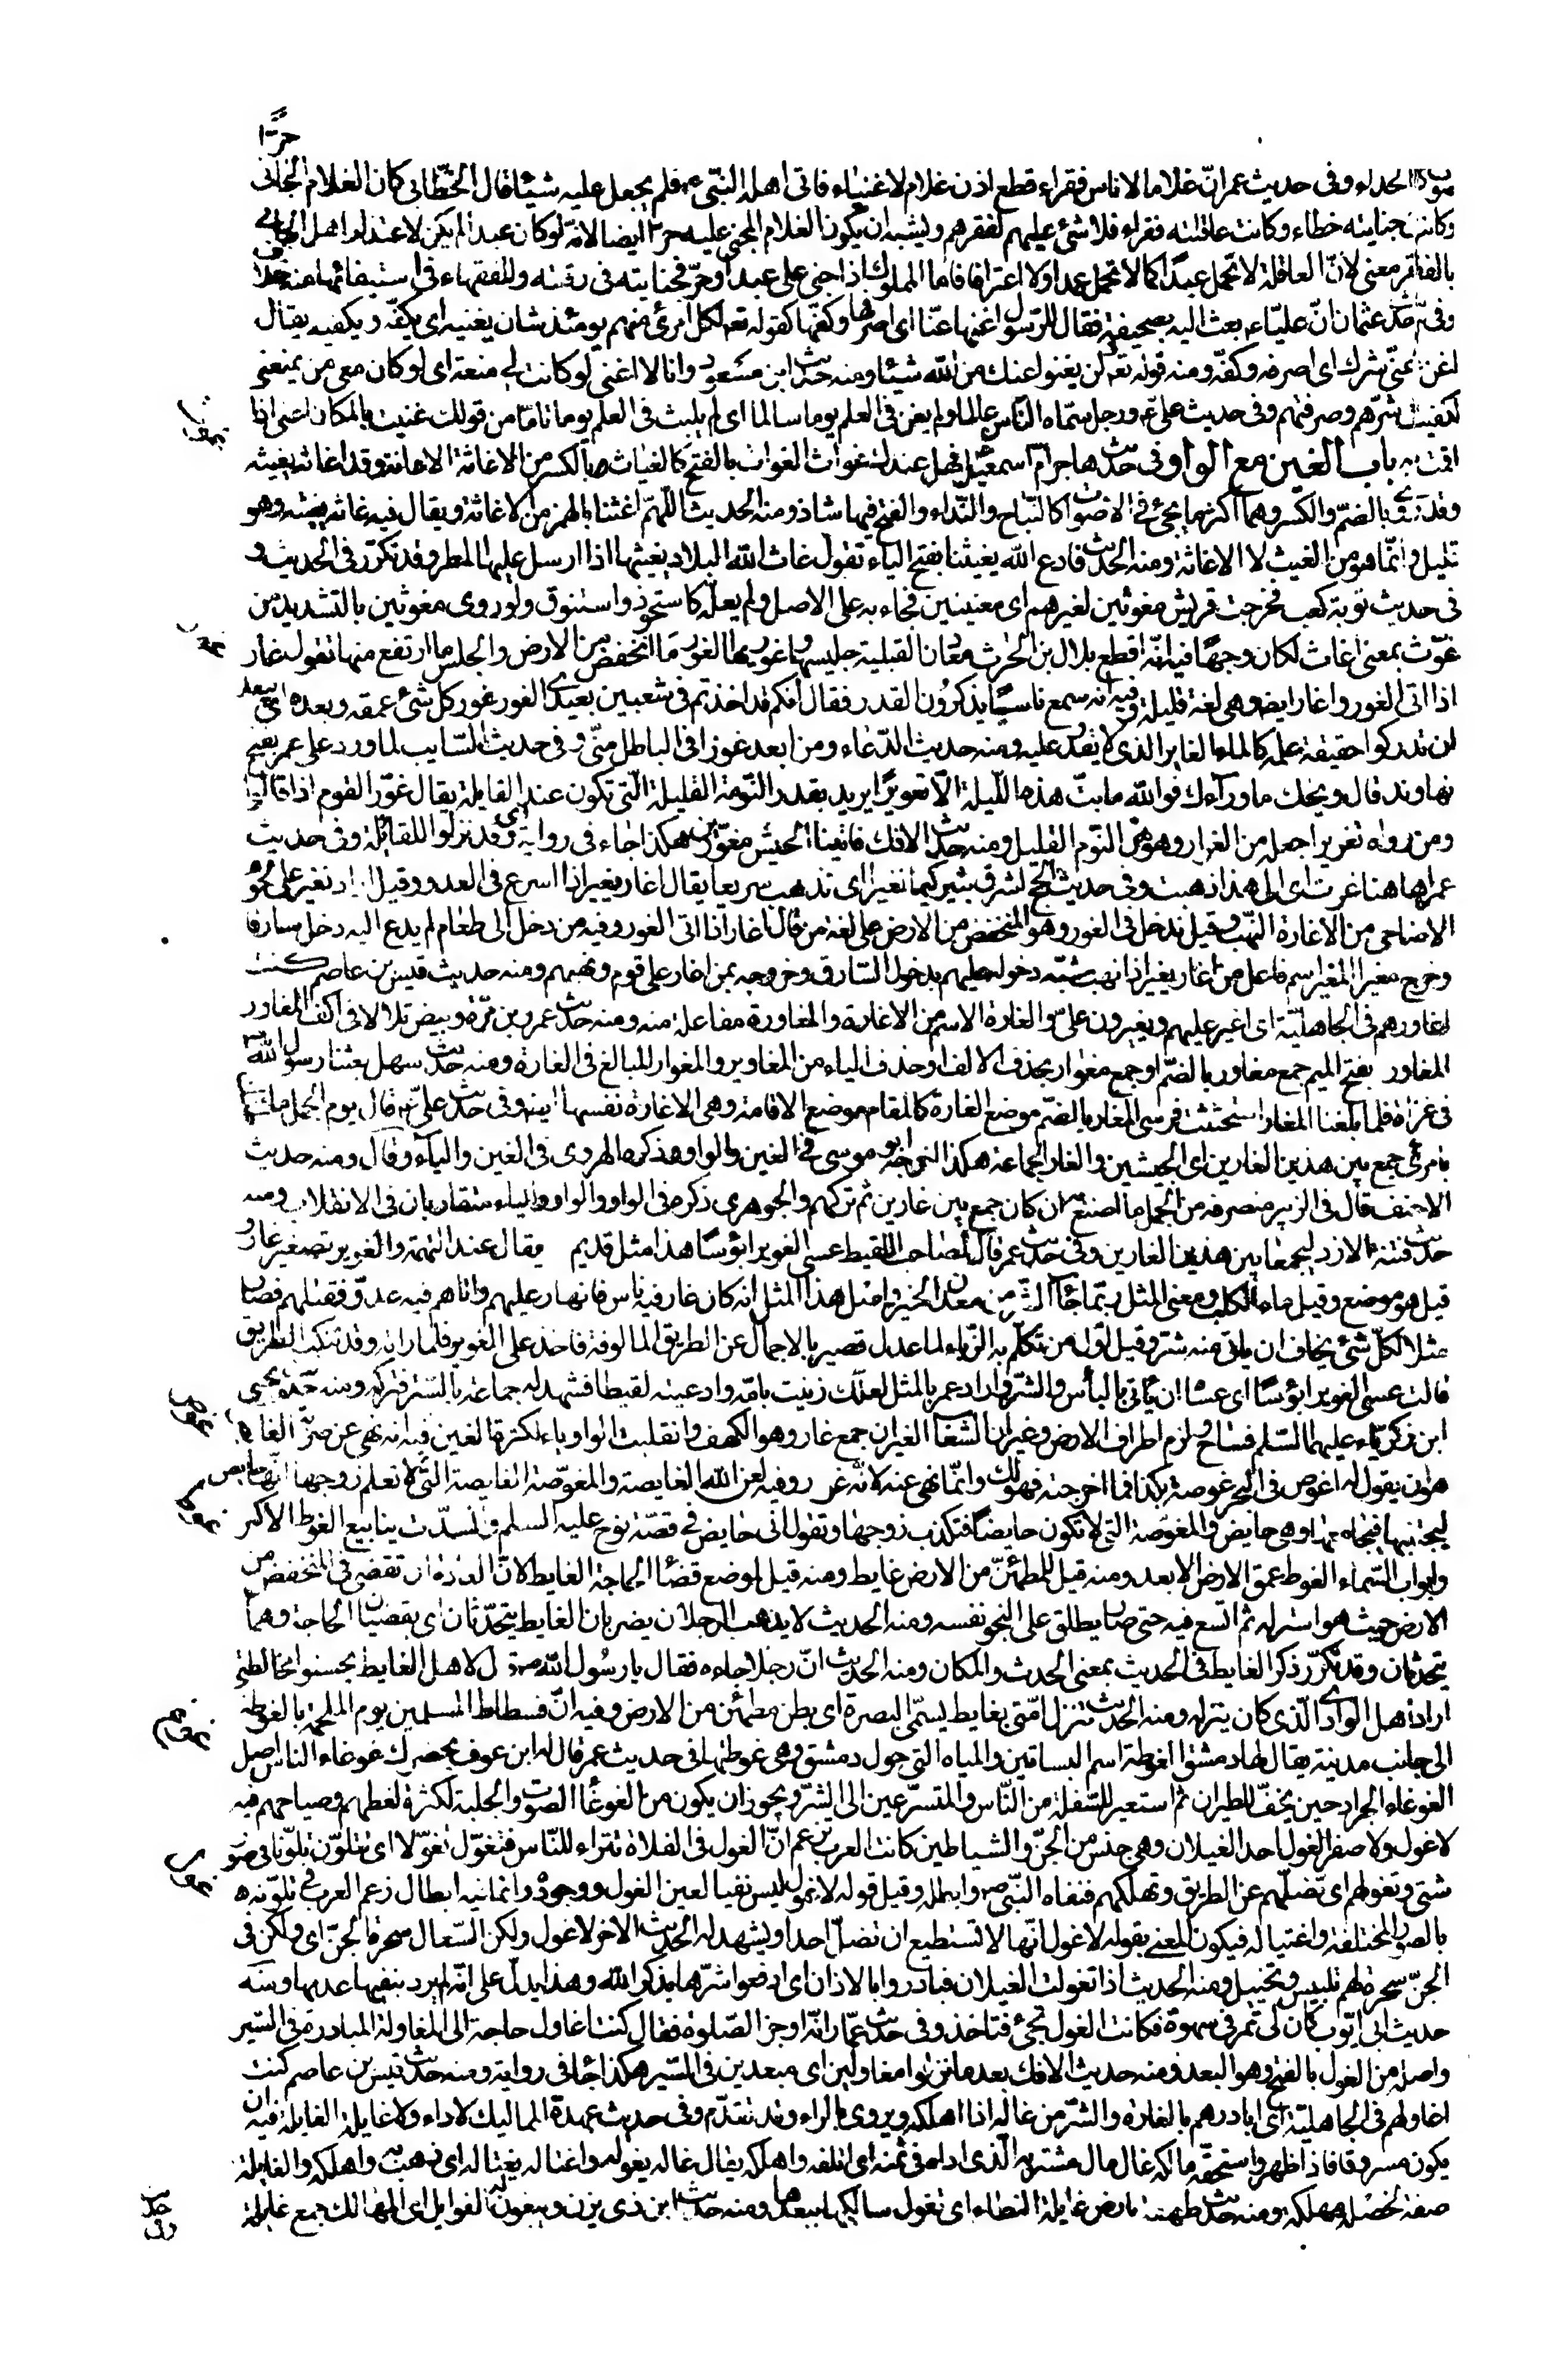 حرّا
صوت الحداء وفى حديث عمران غلاما لاناس فقراء قطع اذن غلام لاغنياء فاتى اهله النبى ص فلم يجعل عليه شيئا قال الخطّابى كان الغلام الجانى
وكانت جنايته خطاء وكانت عاقلته فقراء فلا شئ عليهم لفقرهم ويشبه ان يكون الغلام المجنى عليه حرّا ايضا لانه لو كان عبدا لم يكن لاعتذار اهل الجانى
بالفقر معنى لانّ العاقلة لا تحمل عبدا كما لا تحمل عمدا ولا اعترافا فاما المملوك اذا جنى على عبد او حرّ فجنايته فى رقبته وللفقهاء فى استيفائها منه خلاف
وفى حديث عثمان انّ عليّا ع بعث اليه بصحيفة فقال للرّسول اغنها عنّا اى اصرفها وكفّها كقوله تعه لكل امرئ منهم يومئذ شان يغنيه اى يكفّه ويكفيه يقال
اغن عنّى شرك اى اصرفه وكفّه ومنه قوله تعه لن يغنوا عنك من الله شيئا ومنه حديث ابن مسعود وانا لا اغنى لو كانت لى منعة اى لو كان معى من يمنعنى
لكفيت شرّهم وصرفتهم وفى حديث على ع ورجل سمّاه الناس عالما ولم يغن فى العلم يوما سالما اى لم يلبث فى العلم يوما تامّا من قولك غنيت بالمكان اغنى اذا
اقمت به باب الغين مع الواو فى حديث هاجر امّ اسمعيل فهل عندك غواث الغواث بالفتح كالغياث بالكسر من الاغاثة الاعانة وقد اغاثه يغيثه
وقد روى بالضمّ والكسر وهما اكثر ما يجئ فى الاصوات كالنباح والنّداء والفتح فيها شاذ ومنه الحديث اللّهمّ اغثنا بالهمز من الاغاثة ويقال فيه غاثه يغيثه وهو
قليل وانّما هو من الغيث لا الاغاثة ومنه الحديث فادع الله يغيثنا بفتح الياء تقول غاث الله البلاد يغيثها اذا ارسل عليها المطر وقد تكرّر فى الحديث و
فى حديث توبة كعب فخرجت قريش مغوثين لعيرهم اى مغيثين فجاء به على الاصل ولم يعلّه كاستحوذ واستنوق ولو روى مغوّثين بالتشديد من
غوّث بمعنى اغاث لكان وجها فيه انّه اقطع بلال بن الحرث معادن القبلية جلسيها وغوريها الغور ما انخفض من الارض والجلس ما ارتفع منها تقول غار
اذا اتى الغور واغار ايضا وهى لغة قليلة وفيه انه سمع ناسا يذكرون القدر فقال انكم قد اخذتم فى شعبين بعيدى الغور غور كل شئ عمقه وبعده اى يبعد
ان تدركوا حقيقة علمه كالماء الغاير الذى لا يقدر عليه ومنه حديث الدّعاء ومن ابعد غورا فى الباطل منّى وفى حديث السّايب لما ورد على عمر بفتح
نهاوند قال ويحك ما وراءك فوالله ما بتّ هذه الليلة الّا تغويرا يريد بقدر النّومة القليلة الّتى تكون عند القايلة يقال غوّر القوم اذا قالوا
ومن رواه تغريرا جعله من الغرار وهو النّوم القليل ومنه حديث الافك فاتينا الجيش مغوّرين هكذا جاء فى رواية اى وقد نزلوا للقائلة وفى حديث
عمر اها هنا غرت اى الى هذا ذهبت وفى حديث الحج اشرق ثبير كيما نغير اى نذهب سريعا يقال اغار يغير اذا اسرع فى العدو وقيل اراد نغير على لحوم
الاضاحى من الاغارة النهب وقيل ندخل فى الغور وهو المنخفض من الارض على لغة من قال اغار اذا اتى الغور وفيه من دخل الى طعام لم يدع اليه دخل سارقا
وخرج مغيرا المغير اسم فاعل من اغار يغير اذا نهب شبّه دخوله عليهم بدخول السّارق وخروجه بمن اغار على قوم ونهبهم ومنه حديث قيس بن عاصم كنت
اغاورهم فى الجاهليّة اى اغير عليهم ويغيرون علىّ والغارة الاسم من الاغارة والمغاورة مفاعلة منه ومنه حديث عمرو بن مرّة وبيض تلالا فى اكفّ المغاور
المغاور بفتح الميم جمع مغاور بالضمّ او جمع مغوار بحذف الالف او حذف الياء من المغاوير والمغوار المبالغ فى الغارة ومنه حديث سهل بعثنا رسول الله ص
فى غزاة فلما بلغنا المغار استحثثت فرسى المغار بالضمّ موضع الغارة كالمقام موضع الاقامة وهى الاغارة نفسها ايضا وفى حديث علىّ ع قال يوم الجمل ما ظنك
بامرئ جمع بين هذين الغارين اى الجيشين والغار الجماعة هكذا اخرجه ابو موسى فى الغين والواو وذكره الهروى فى الغين والياء وقال ومنه حديث
الاحنف قال فى الزبير منصرفه من الجمل ما اصنع به ان كان جمع بين غارين ثم تركهم والجوهرى ذكره فى الواو والواو والياء متقاربان فى الانقلاب ومنه
حديث فتنة الازد ليجمعا بين هذين الغارين وفى حديث عمر قال لصاحب اللقيط عسى الغوير ابؤسا هذا مثل قديم يقال عند التّهمة والغوير تصغير غار و
قيل هو موضع وقيل ماء لكلب ومعنى المثل ربّما جاء الشّر من معدن الخير واصل هذا المثل انه كان غار فيه ناس فانهار عليهم واتاهم فيه عدوّ فقتلهم فصار
مثلا لكلّ شئ يخاف ان ياتى منه شر وقيل اوّل من تكلّم به الزّباء لما عدل قصير بالاجمال عن الطريق المالوفة فاخذ على الغوير فلما راته وقد تنكب الطريق
قالت عسى الغوير ابؤسا اى عساه ان ياتى بالباس والشّر واراد عمر بالمثل لعلّك زنيت بامّه وادعيته لقيطا فشهد له جماعة بالستر فتركه ومنه حديث يحيى
ابن زكريّاء عليهما السّلم فساح ولزم اطراف الارض وغيران الشعاب الغيران جمع غار وهو الكهف وانقلبت الواو ياء لكسرة الغين فيه انه نهى عن ضربة الغايص
هو ان يقول له اغوص فى البحر غوصة بكذا فما اخرجته فهو لك وانّما نهى عنه لانّه غرر وفيه لعن الله الغايصة والمغوّصة الغايصة التى لا تعلم زوجها انّها حايض
ليجتنبها فيجامعها وهى حايض والمغوّصة التى لا تكون حايضا فتكذب زوجها وتقول انى حايض فى قصّة نوح عليه السلم وانسدّت ينابيع الغوط الاكبر
وابواب السّماء الغوط عمق الارض الابعد ومنه قيل للمطمئنّ من الارض غايط ومنه قيل لموضع قضاء الحاجة الغايط لانّ العادة ان تقضى فى المنخفض من
الارض حيث هو استر له ثم اتّسع فيه حتى صار يطلق على النجو نفسه ومنه الحديث لا يذهب الرجلان يضربان الغايط يتحدّثان اى يقضيان الحاجة وهما
يتحدثان وقد تكرّر ذكر الغايط فى الحديث بمعنى الحدث والمكان ومنه الحديث انّ رجلا جاءه فقال يا رسول الله ص قل لاهل الغايط يحسنوا مخالطتى
اراد اهل الوادى الّذى كان ينزله ومنه الحديث تنزل امّتى بغايط يسمّى البصرة اى بطن مطمئن من الارض وفيه انّ فسطاط المسلمين يوم الملحمة بالغوطة
الى جانب مدينة يقال لها دمشق الغوطة اسم البساتين والمياه التى حول دمشق وهى غوطتها فى حديث عمر قال له ابن عوف يحضرك غوغاء الناس اصل
الغوغاء الجراد حين يخفّ للطيران ثم استعير للسّفلة من النّاس والمتسرّعين الى الشرّ ويجوز ان يكون من الغوغاء الصّوت والجلبة لكثرة لغطهم وصياحهم فيه
لا غول ولا صفر الغول احد الغيلان وهى جنس من الجنّ والشياطين كانت العرب تزعم انّ الغول فى الفلاة تتراءى للنّاس فتغوّل تغوّلا اى تتلوّن تلوّنا فى صور
شتى وتغولهم اى تضلّهم عن الطريق وتهلكهم فنفاه النّبى ص وابطله وقيل قوله لا غول ليس نفيا لعين الغول ووجوده وانما فيه ابطال زعم العرب فى تلوّنه
بالصور المختلفة واغتياله فيكون المعنى بقوله لا غول انّها لا تستطيع ان تضلّ احدا ويشهد له الحديث الاخر لا غول ولكن السّعالى سحرة الجنّ اى ولكن فى
الجنّ سحرة لهم تلبيس وتخييل ومنه الحديث اذا تغولت الغيلان فبادروا بالاذان اى ادفعوا شرّها بذكر الله وهذا يدلّ على انّه لم يرد بنفيها عدمها ومنه
حديث ابى ايّوب كان لى تمر فى سهوة فكانت الغول تجئ فتاخذ وفى حديث عمّار انّه اوجز الصّلوة فقال كنت اغاول حاجة الى المغاولة المبادرة فى السّير
واصله من الغول بالفتح وهو البعد ومنه حديث الافك بعد ما نزلوا مغاولين اى مبعدين فى السّير هكذا جاء فى رواية ومنه حديث قيس بن عاصم كنت
اغاولهم فى الجاهليّة اى ابادرهم بالغارة والشّر من غاله اذا اهلكه ويروى بالراء وقد تقدّم وفى حديث عهدة المماليك لا داء ولا غايلة الغايلة فيه ان
يكون مسروقا فاذا ظهر واستحقّه مالكه غال مال مشتريه الّذى اداه فى ثمنه اى اتلفه واهلكه يقال غاله يغوله واغتاله يغتاله اى ذهب به واهلكه والغايلة
صفة لخصلة مهلكة ومنه حديث طهفة بارض غايلة النطاء اى تغول سالكيها ببعدها ومنه حديث ابن ذى يزن ويبغون له الغوايل اى المهالك جمع غايلة